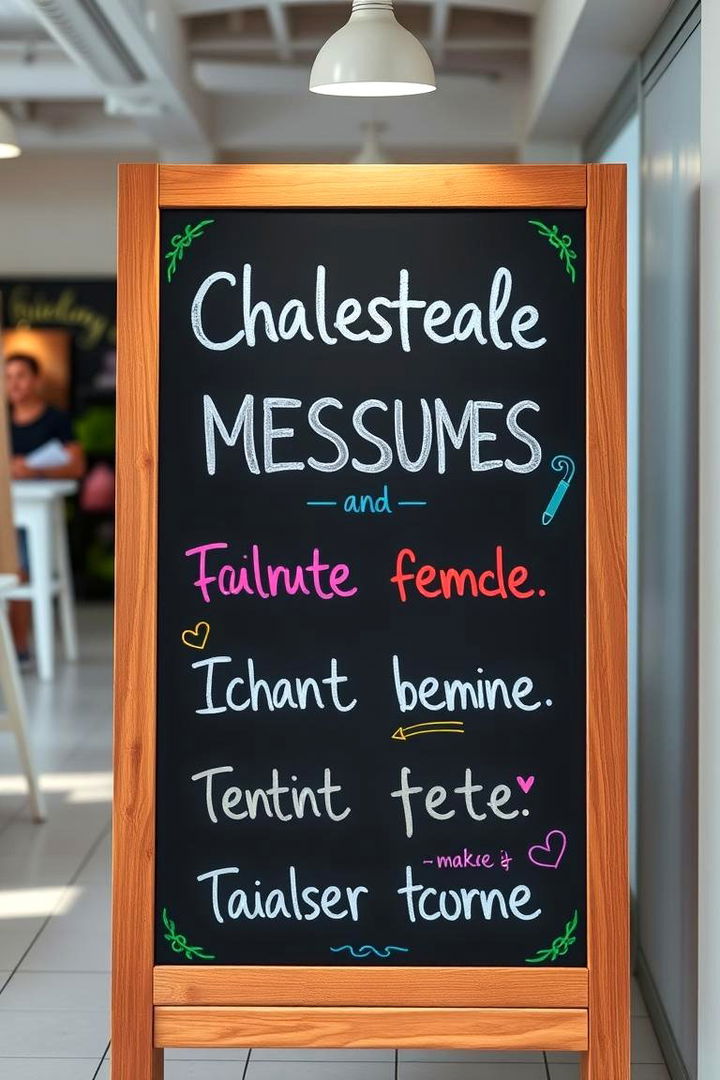 Chalesteale
MESSUMES
— and —
Failrute femcle.
Ichant bemine.
Tentint fete.
-makre
Taialser tcorne